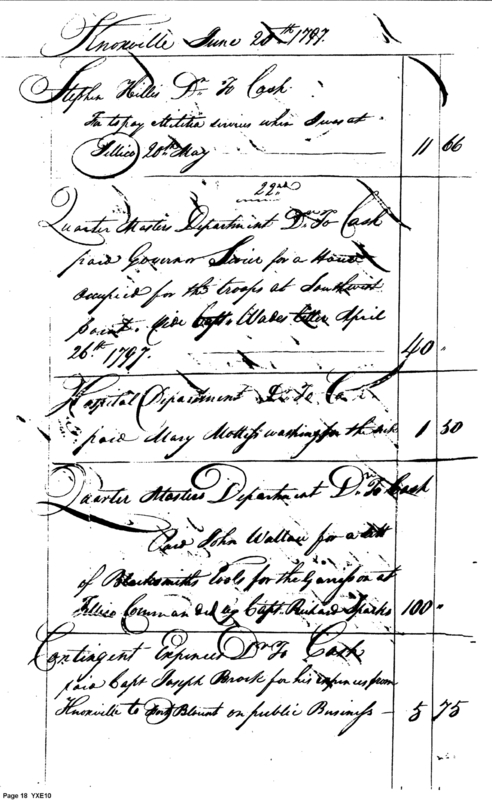 Knoxville June 20th 1797.
Stephen Hilles Dr To Cash
to pay Militia when I was at
Tellico 20th May 11 66
22nd
Quarter Masters Department Dr To Cash
paid Governor Sevier for a House
occupied for the troops at Southwest
point. Vide Capt. Wades letter April
26th 1797. 40 "
Hospital Department Dr To Cash
paid Mary washing for the sick 1 50
Quarter Masters Department Dr To Cash
Paid John Wallace for a sett
of Blacksmiths Tools for the Garrison at
Tellico Commanded by Capt. Richard Sparks 100 "
Contingent Expences Dr To Cash
paid Capt Joseph Brock for his expences from
Knoxville to Fort Blount on public Business — 5 75
Page 18 YXE10